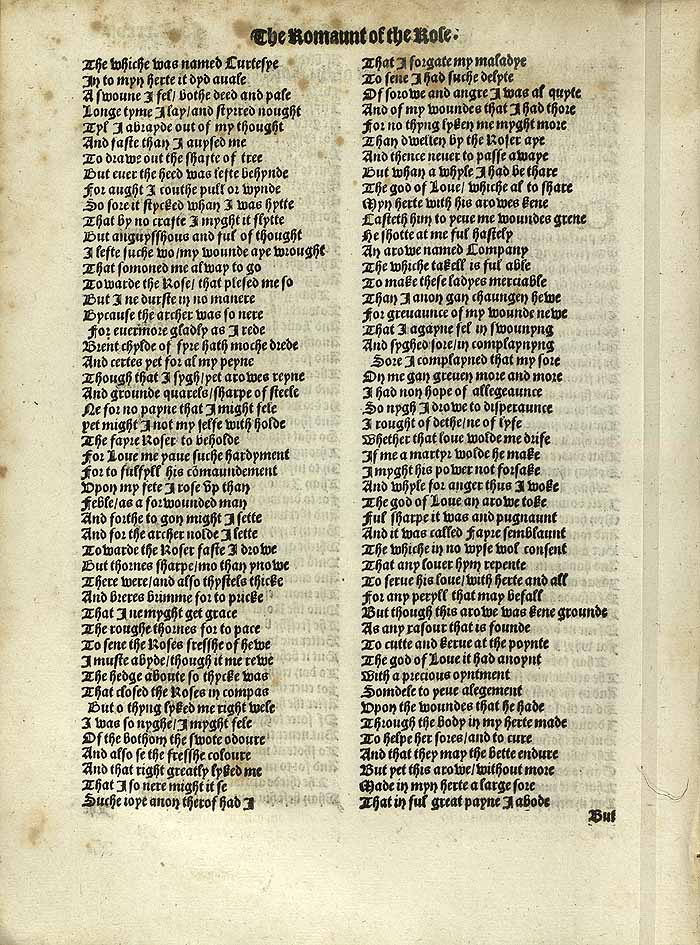 The Romaunt of the Rose.
The whiche was named Curtesye
In to myn herte it dyd auale
A swoune I fel/ bothe deed and pale
Longe tyme I lay/and styrred nought
Tyl I abrayde out of my thought
And faste than I auysed me
To drawe out the shafte of tree
But euer the heed was lefte behynde
For aught I couthe pull or wynde
So sore it stycked whan I was hytte
That by no crafte I myght it flytte
But anguysshous and ful of thought
I lefte suche wo/my wounde aye wrought
That somoned me alway to go
Towarde the Rose/ that plesed me so
But I ne durste in no manere
Bycause the archer was so nere
For euermore gladly as I rede
Brent chylde of fyre hath moche drede
And certes yet for al my peyne
Though that I sygh/yet arowes reyne
And grounde quarels/sharpe of steele
Ne for no payne that I might fele
yet might I not my selfe with holde
The fayre Roser to beholde
For Loue me yaue suche hardyment
For to fulfyll his cōmaundement
Vpon my fete I rose vp than
Feble/as a forwounded man
And forthe to gon might I sette
And for the archer nolde I lette
Towarde the Roser faste I drowe
But thornes sharpe/mo than ynowe
There were/and also thystels thicke
And breres brimme for to pricke
That I ne myght get grace
The roughe thornes for to pace
To sene the Roses fresshe of hewe
I muste abyde/though it me rewe
The hedge aboute so thycke was
That closed the Roses in compas
But o thyng lyked me right wele
I was so nyghe/I myght fele
Of the bothom the swote odoure
And also se the fresshe coloure
And that right greatly lyked me
That I so nere might it se
Suche ioye anon therof had I
That I forgate my maladye
To sene I had suche delyte
Of sorowe and angre I was al quyte
And of my woundes that I had thore
For no thyng lyken me myght more
Than dwellen by the Roser aye
And thence neuer to passe awaye
But whan a whyle I had be thare
The god of Loue/ whiche al to share
Myn herte with his arowes kene
Casteth hym to yeue me woundes grene
He shotte at me ful hastely
An arowe named Company
The whiche takell is ful able
To make these ladyes merciable
Than I anon gan chaungen hewe
For greuaunce of my wounde newe
That I agayne fel in swounyng
And syghed sore/in complaynyng
Sore I complayned that my sore
On me gan greuen more and more
I had non hope of allegeaunce
So nygh I drowe to disperaunce
I rought of dethe/ne of lyfe
Whether that loue wolde me drife
If me a martyr wolde he make
I myght his power not forsake
And whyle for anger thus I woke
The god of Loue an arowe toke
Ful sharpe it was and pugnaunt
And it was called Fayre semblaunt
The whiche in no wyse wol consent
That any louer hym repente
To serue his loue/with herte and all
For any peryll that may befall
But though this arowe was kene grounde
As any rasour that is founde
To cutte and kerue at the poynte
The god of Loue it had anoynt
With a precious oyntment
Somdele to yeue alegement
Vpon the woundes that he hade
Through the body in my herte made
To helpe her sores/and to cure
And that they may the bette endure
But yet this arowe/without more
Made in myn herte a large sore
That in ful great payne I abode
But